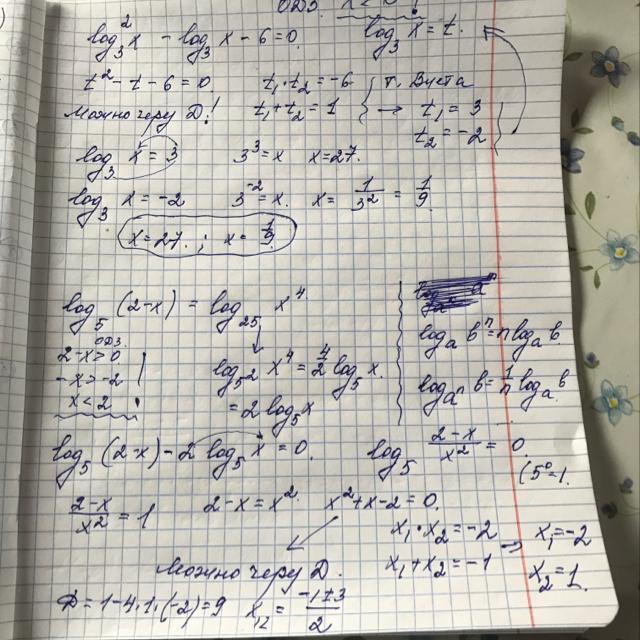 ОДЗ. x < 0 !
log₃²x − log₃x − 6 = 0. log₃x = t.
t² − t − 6 = 0. t₁·t₂ = −6 т. Виета
Можно черу D! t₁ + t₂ = 1 → t₁ = 3
t₂ = −2
log₃ x = 3 3³ = x x = 27.
log₃ x = −2 3⁻² = x. x = 1/3² = 1/9
x = 27. ; x = 1/9
log₅ (2−x) = log₂₅ x⁴
ОДЗ.
2−x > 0
−x > −2
x < 2
log₅2 x⁴ = 4/2 log₅ x.
= 2 log₅ x
logₐ bⁿ = n logₐ b.
logₐn b = 1/n logₐ b
log₅ (2−x) − 2 log₅ x = 0. log₅ (2−x)/x² = 0.
(5⁰ = 1.
(2−x)/x² = 1 2−x = x² x² + x − 2 = 0.
x₁·x₂ = −2
x₁ + x₂ = −1 → x₁ = −2
x₂ = 1.
Можно черу D.
D = 1 − 4·1·(−2) = 9 x₁₂ = (−1±3)/2